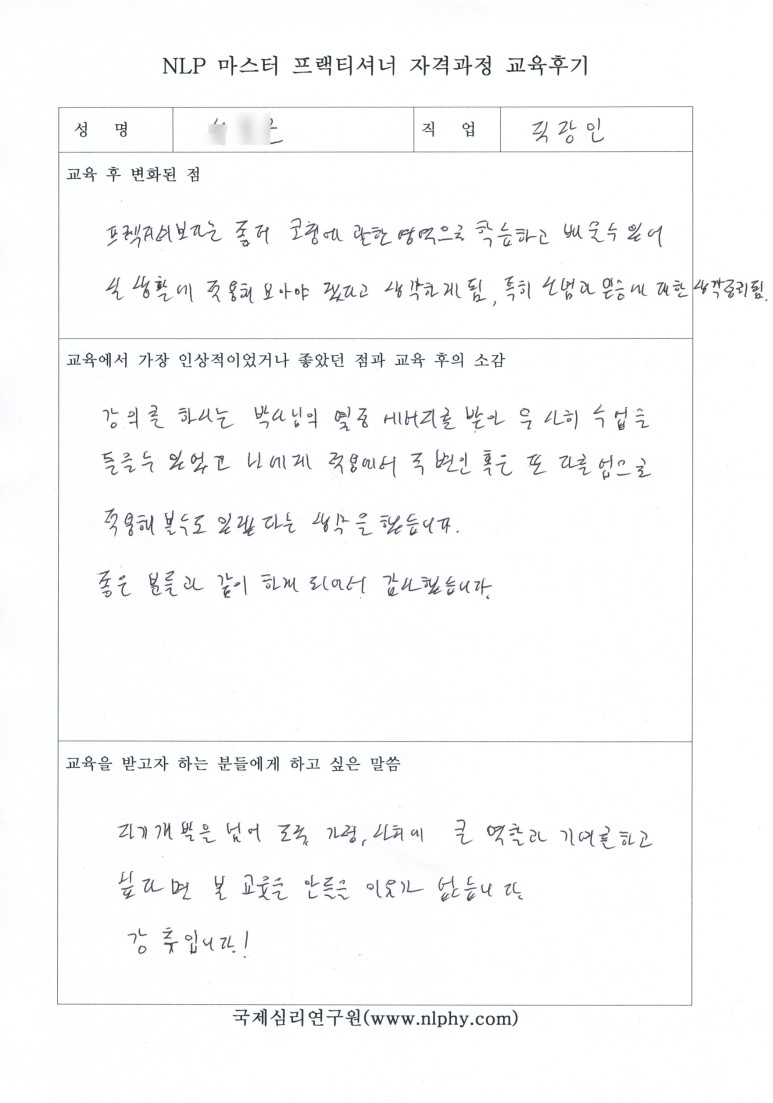 NLP 마스터 프랙티셔너 자격과정 교육후기
성 명
직 업 직장인
교육 후 변화된 점
좀더 관한 영역으로 학습하고 배울수 있어
실 생활에 적용해 보아야 겠다고 생각하게 됨, 특히 신념과 대한 생각정리됨.
교육에서 가장 인상적이었거나 좋았던 점과 교육 후의 소감
강의를 하시는 박사님의 열정 에너지를 받아 무사히 수업을
들을수 있었고 나에게 적용에서 주변인 혹은 또 다른 업으로
적용해 볼수도 있겠다는 생각을 했습니다.
좋은 분들과 같이 하게 되어서 감사했습니다.
교육을 받고자 하는 분들에게 하고 싶은 말씀
자기개발을 넘어 조직, 가정, 사회에 큰 역할과 기여를 하고
싶다면 본 교육을 안들을 이유가 없습니다.
강추입니다!
국제심리연구원(www.nlphy.com)